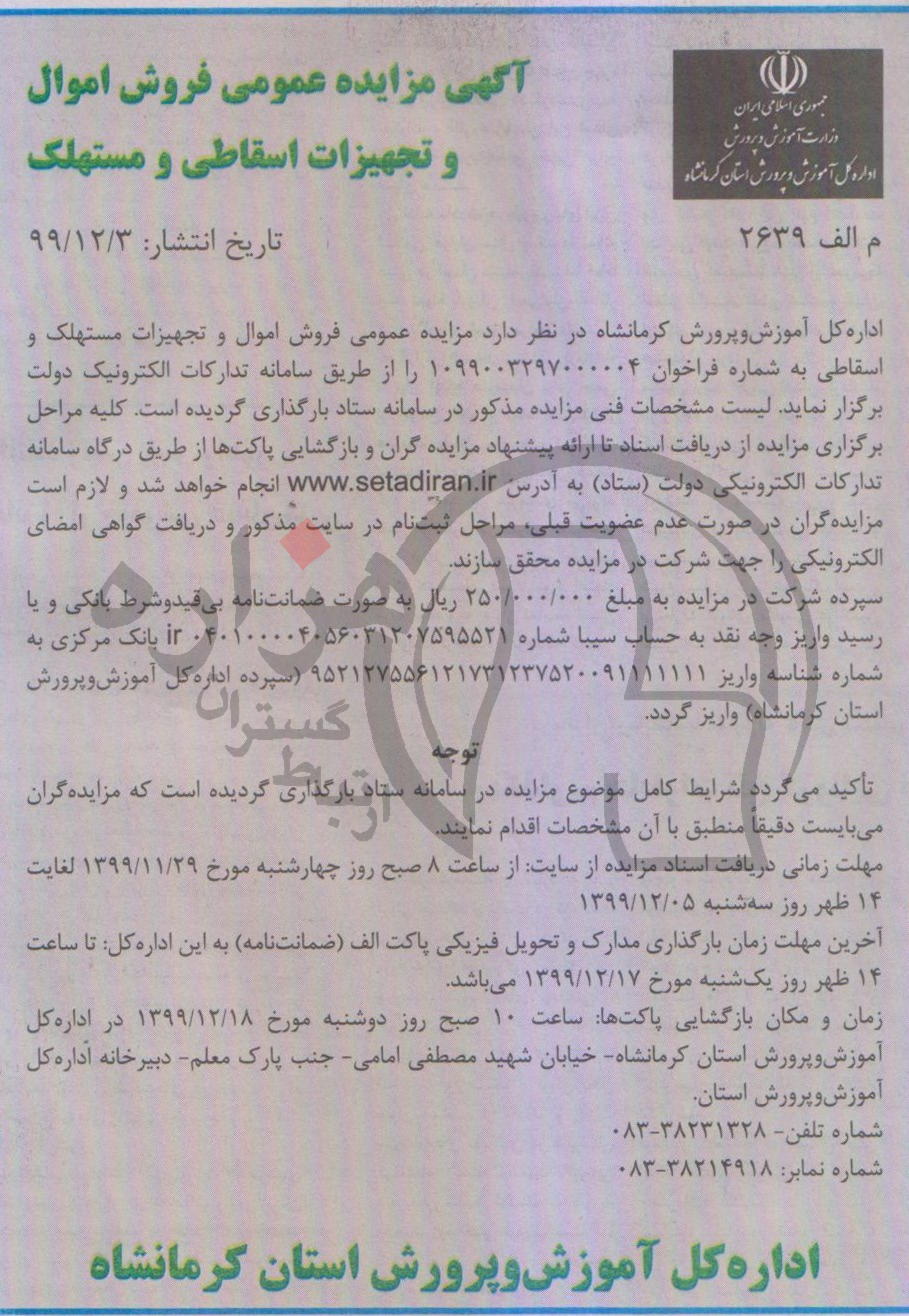 جمهوری اسلامی ایران
وزارت آموزش و پرورش
اداره کل آموزش و پرورش استان کرمانشاه
آگهی مزایده عمومی فروش اموال
و تجهیزات اسقاطی و مستهلک
م الف ۲۶۳۹
تاریخ انتشار: ۹۹/۱۲/۳
اداره‌کل آموزش‌وپرورش کرمانشاه در نظر دارد مزایده عمومی فروش اموال و تجهیزات مستهلک و
اسقاطی به شماره فراخوان ۱۰۹۹۰۰۳۲۹۷۰۰۰۰۰۴ را از طریق سامانه تدارکات الکترونیک دولت
برگزار نماید. لیست مشخصات فنی مزایده مذکور در سامانه ستاد بارگذاری گردیده است. کلیه مراحل
برگزاری مزایده از دریافت اسناد تا ارائه پیشنهاد مزایده گران و بازگشایی پاکت‌ها از طریق درگاه سامانه
تدارکات الکترونیکی دولت (ستاد) به آدرس www.setadiran.ir انجام خواهد شد و لازم است
مزایده‌گران در صورت عدم عضویت قبلی، مراحل ثبت‌نام در سایت مذکور و دریافت گواهی امضای
الکترونیکی را جهت شرکت در مزایده محقق سازند.
سپرده شرکت در مزایده به مبلغ ۲۵۰/۰۰۰/۰۰۰ ریال به صورت ضمانت‌نامه بی‌قیدوشرط بانکی و یا
رسید واریز وجه نقد به حساب سیبا شماره ir ۰۴۰۱۰۰۰۰۴۰۵۶۰۳۱۲۰۷۵۹۵۵۲۱ بانک مرکزی به
شماره شناسه واریز ۹۵۲۱۲۷۵۵۶۱۲۱۷۳۱۲۳۷۵۲۰۰۹۱۱۱۱۱۱۱ (سپرده اداره‌کل آموزش‌وپرورش
استان کرمانشاه) واریز گردد.
توجه
تأکید می‌گردد شرایط کامل موضوع مزایده در سامانه ستاد بارگذاری گردیده است که مزایده‌گران
می‌بایست دقیقاً منطبق با آن مشخصات اقدام نمایند.
مهلت زمانی دریافت اسناد مزایده از سایت: از ساعت ۸ صبح روز چهارشنبه مورخ ۱۳۹۹/۱۱/۲۹ لغایت
۱۴ ظهر روز سه‌شنبه ۱۳۹۹/۱۲/۰۵
آخرین مهلت زمان بارگذاری مدارک و تحویل فیزیکی پاکت الف (ضمانت‌نامه) به این اداره‌کل: تا ساعت
۱۴ ظهر روز یک‌شنبه مورخ ۱۳۹۹/۱۲/۱۷ می‌باشد.
زمان و مکان بازگشایی پاکت‌ها: ساعت ۱۰ صبح روز دوشنبه مورخ ۱۳۹۹/۱۲/۱۸ در اداره‌کل
آموزش‌وپرورش استان کرمانشاه- خیابان شهید مصطفی امامی- جنب پارک معلم- دبیرخانه اداره‌کل
آموزش‌وپرورش استان.
شماره تلفن- ۳۸۲۳۱۳۲۸-۰۸۳
شماره نمابر: ۳۸۲۱۴۹۱۸-۰۸۳
اداره‌کل آموزش‌وپرورش استان کرمانشاه
هزاره
گستران
ارتباط